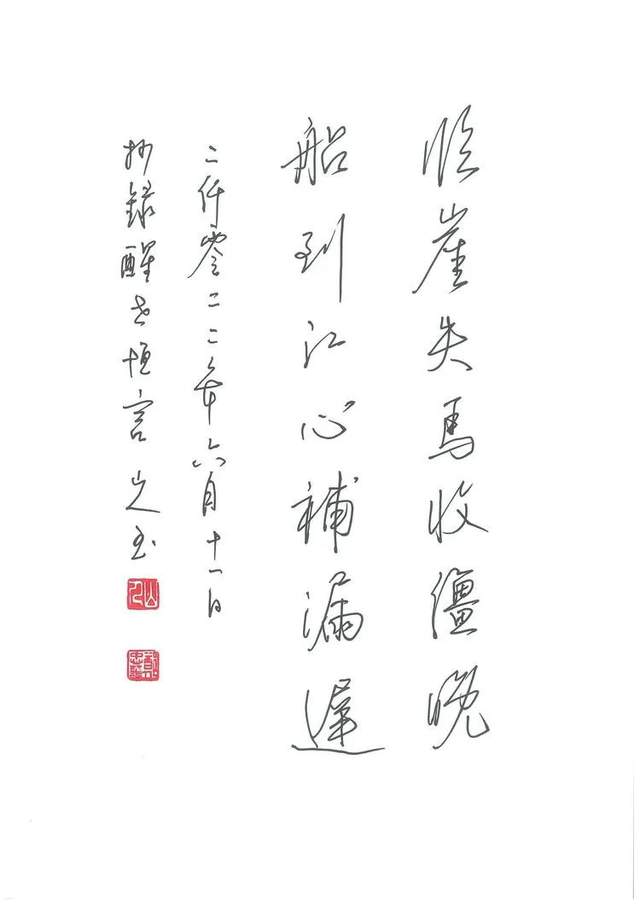 臨崖失馬收繮晚
船到江心補漏遲
二仟零二二年六月十一日
抄錄醒世恒言